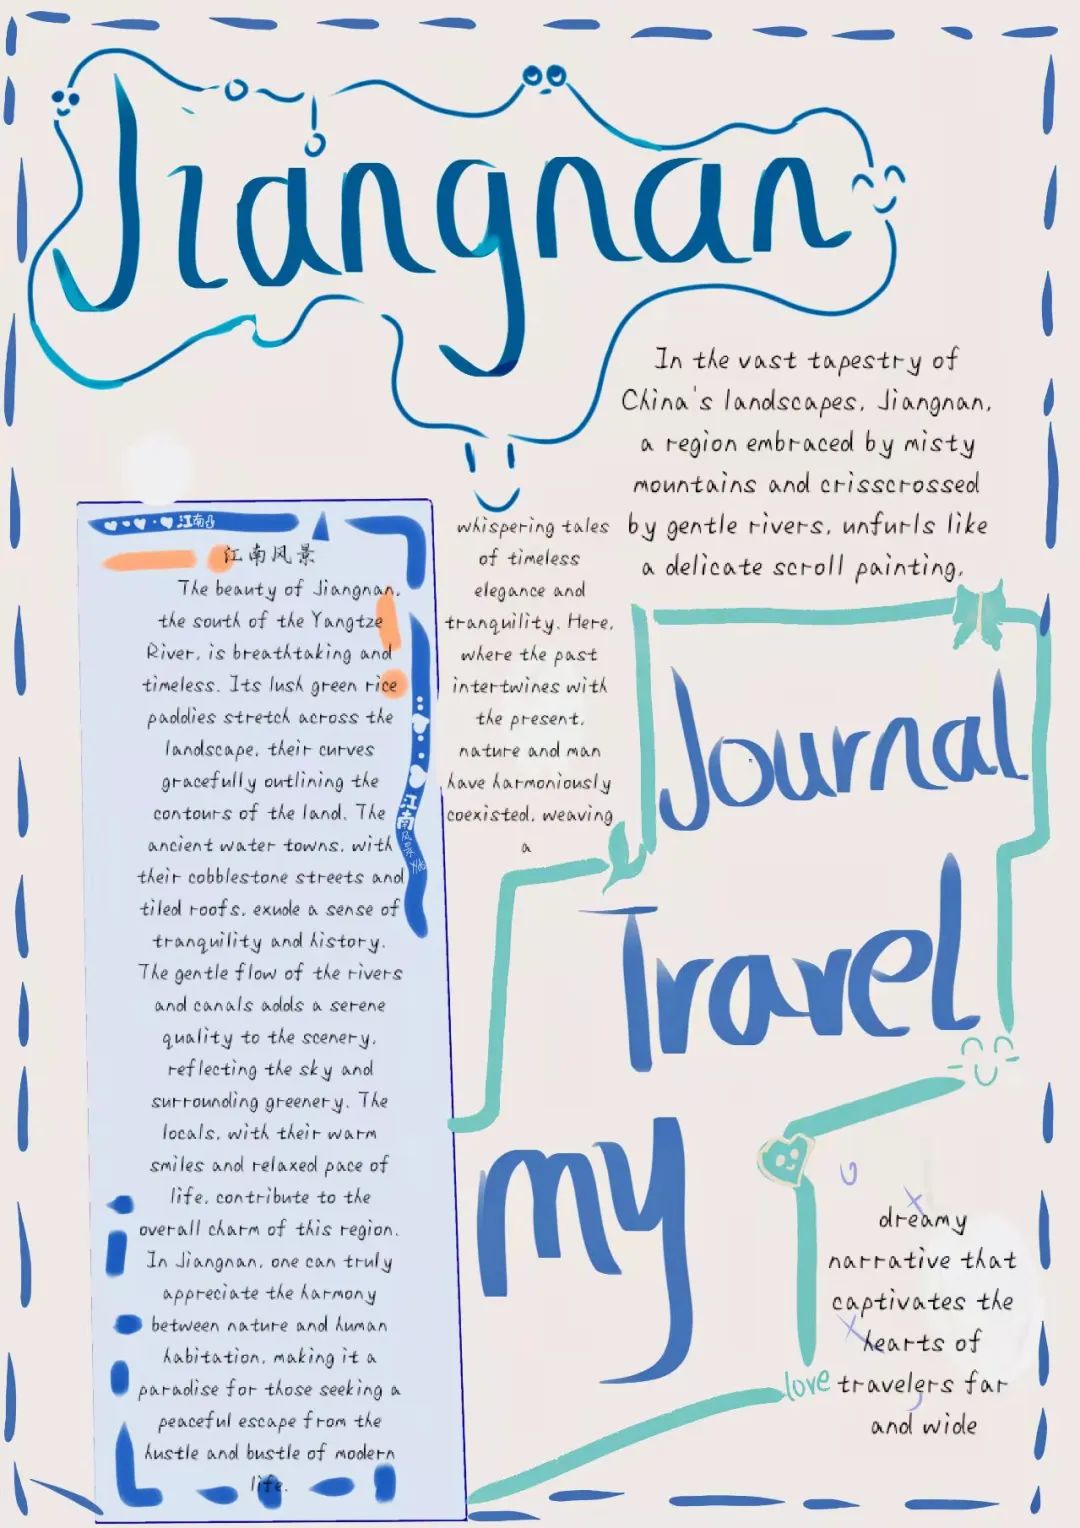 Jiangnan
In the vast tapestry of
China's landscapes, Jiangnan,
a region embraced by misty
mountains and crisscrossed
by gentle rivers, unfurls like
a delicate scroll painting,
whispering tales
of timeless
elegance and
tranquility. Here,
where the past
intertwines with
the present,
nature and man
have harmoniously
coexisted, weaving
a
dreamy
narrative that
captivates the
hearts of
travelers far
and wide
love
Journal
Travel
my
江南
江南风景
The beauty of Jiangnan,
the south of the Yangtze
River, is breathtaking and
timeless. Its lush green rice
paddies stretch across the
landscape, their curves
gracefully outlining the
contours of the land. The
ancient water towns, with
their cobblestone streets and
tiled roofs, exude a sense of
tranquility and history.
The gentle flow of the rivers
and canals adds a serene
quality to the scenery,
reflecting the sky and
surrounding greenery. The
locals, with their warm
smiles and relaxed pace of
life, contribute to the
overall charm of this region.
In Jiangnan, one can truly
appreciate the harmony
between nature and human
habitation, making it a
paradise for those seeking a
peaceful escape from the
hustle and bustle of modern
life.
江南风景